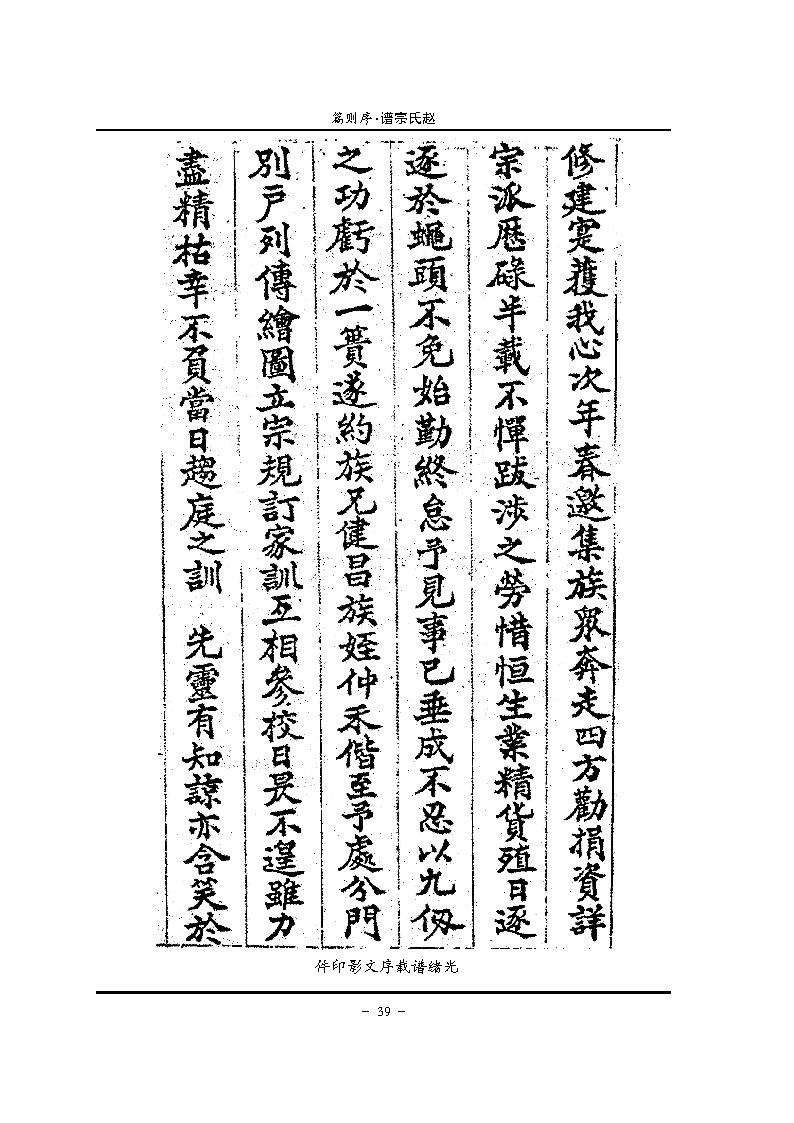 篇则序·谱宗氏赵
修建寔獲我心次年春邀集族眾奔走四方勸捐資詳
宗派歷碌半載不憚跋涉之勞惜恒生業精貨殖日逐
逐於蠅頭不免始勤終怠予見事已垂成不忍以九仞
之功虧於一簣遂約族兄健昌族姪仲禾偕至予處分門
別戶列傳繪圖立宗規訂家訓互相參校日晷不遑雖力
盡精枯幸不負當日趨庭之訓 先靈有知諒亦含笑於
件印影文序载谱绪光
- 39 -